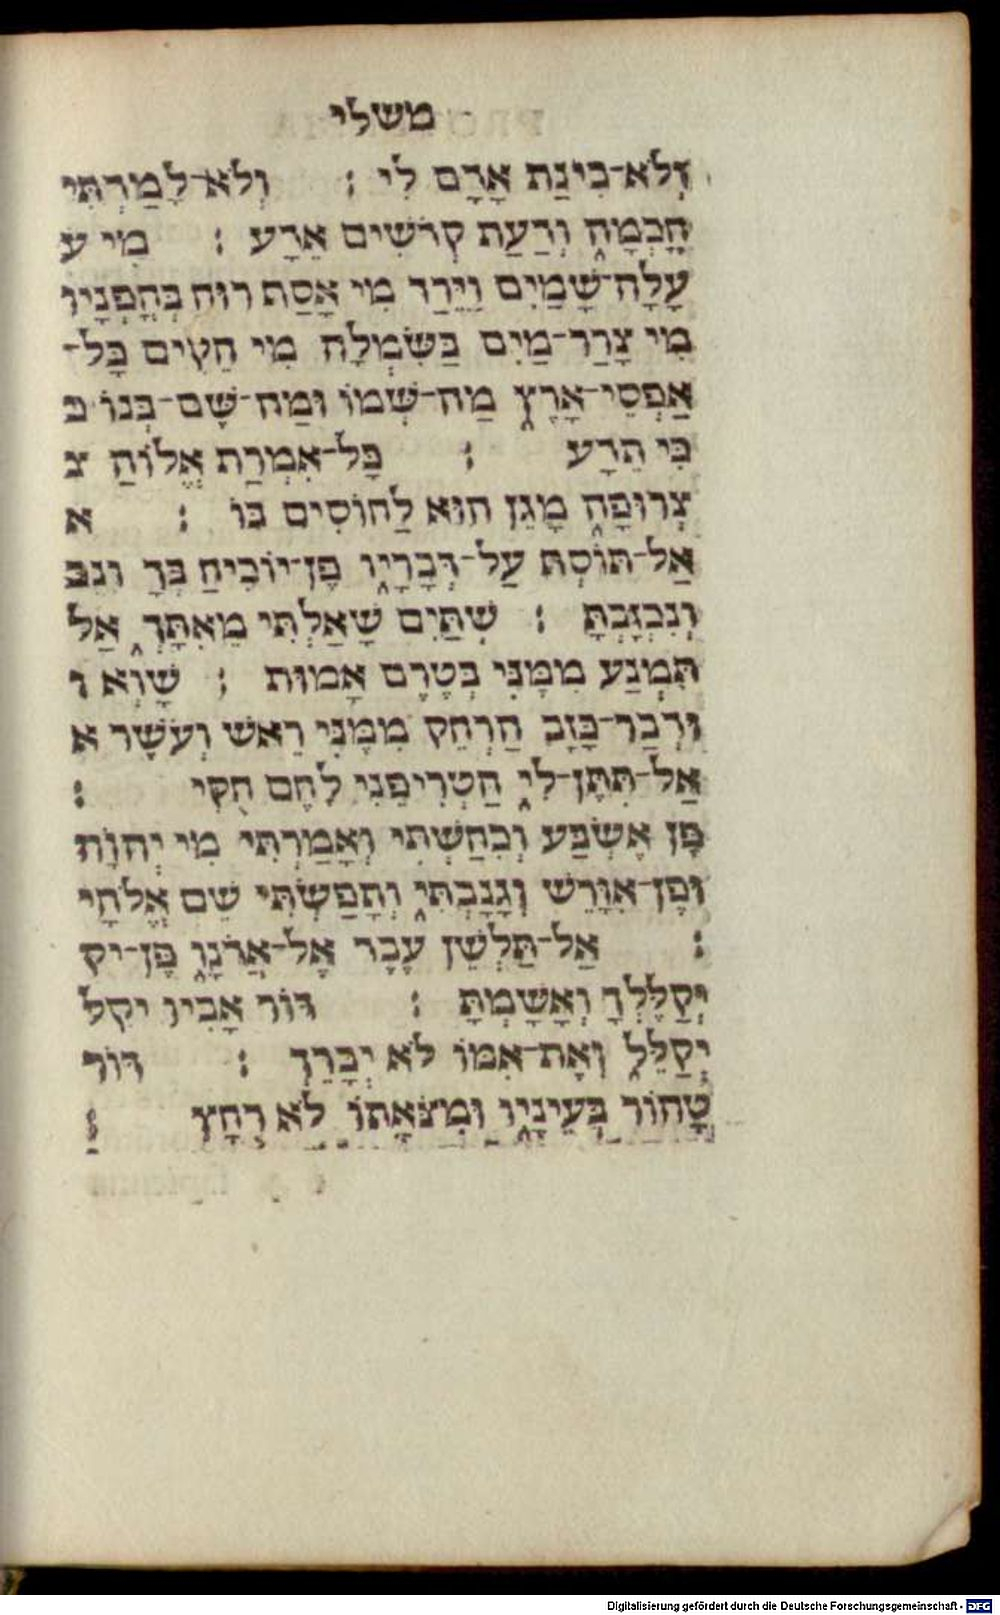 משלי
וְלֹא־בִינַת אָדָם לִי : וְלֹא־לָמַדְתִּי
חָכְמָה וְדַעַת קְדֹשִׁים אֵדָע : מִי ע
עָלָה־שָׁמַיִם וַיֵּרַד מִי אָסַף רוּחַ בְּחָפְנָיו
מִי צָרַר־מַיִם בַּשִּׂמְלָה מִי הֵקִים כָּל־
אַפְסֵי־אָרֶץ מַה־שְּׁמוֹ וּמַה־שֶּׁם־בְּנוֹ כ
כִּי תֵדָע : כָּל־אִמְרַת אֱלוֹהַּ צ
צְרוּפָה מָגֵן הוּא לַחוֹסִים בּוֹ : א
אַל־תּוֹסְףְּ עַל־דְּבָרָיו פֶּן־יוֹכִיחַ בְּךָ ונכ
וְנִכְזָבְתָּ : שְׁתַּיִם שָׁאַלְתִּי מֵאִתָּךְ אַל
תִּמְנַע מִמֶּנִּי בְּטֶרֶם אָמוּת : שָׁוְא ו
וּדְבַר־כָּזָב הַרְחֵק מִמֶּנִּי רֵאשׁ וְעֹשֶׁר א
אַל־תִּתֶּן־לִי הַטְרִיפֵנִי לֶחֶם חֻקִּי :
פֶּן אֶשְׂבַּע וְכִחַשְׁתִּי וְאָמַרְתִּי מִי יְהוָֹה
וּפֶן־אִוָּרֵשׁ וְגָנַבְתִּי וְתָפַשְׂתִּי שֵׁם אֱלֹהָי
: אַל־תַּלְשֵׁן עֶבֶד אֶל־אֲדֹנָו פֶּן־יק
יְקַלֶּלְךָ וְאָשָׁמְתָּ : דּוֹר אָבִיו יקל
יְקַלֵּל וְאֶת־אִמּוֹ לֹא יְבָרֵךְ : דּוֹר
טָהוֹר בְּעֵינָיו וּמִצֹּאָתוֹ לֹא רֻחָץ :
Digitalisierung gefördert durch die Deutsche Forschungsgemeinschaft - DFG